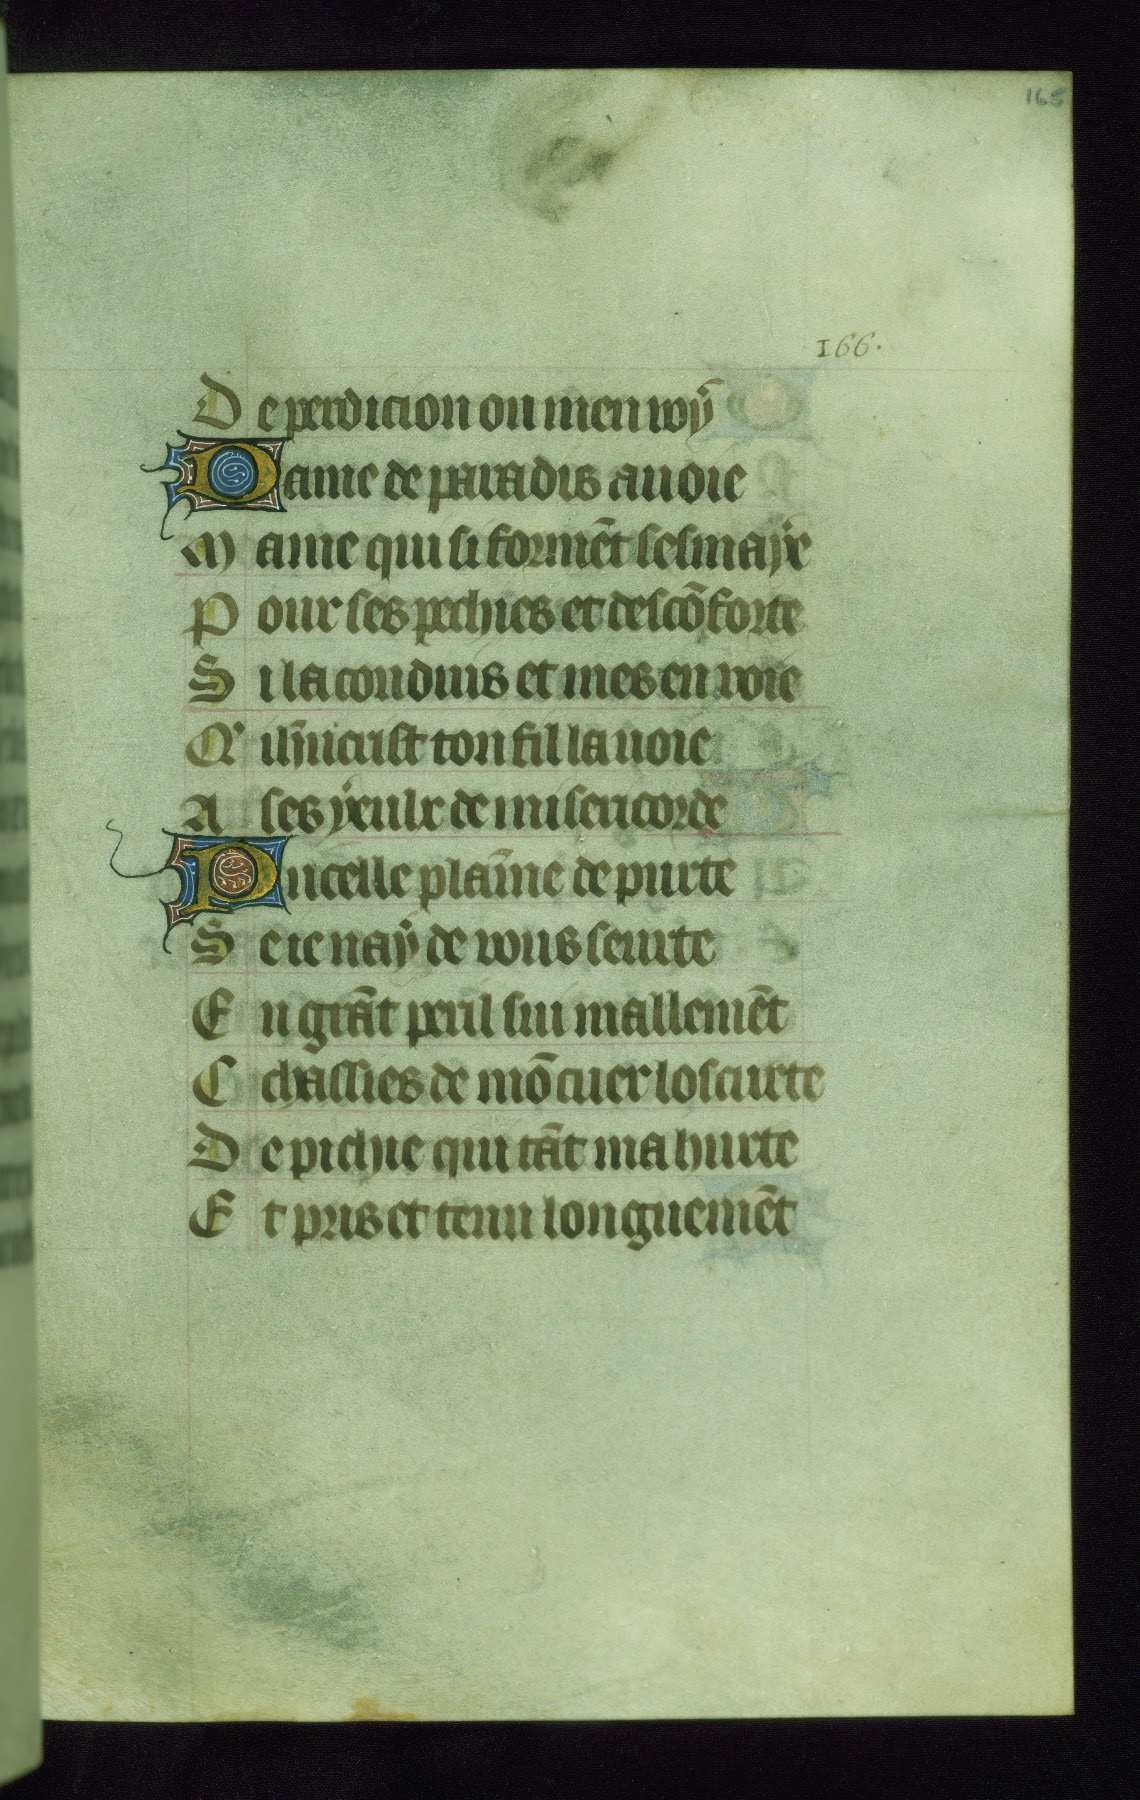 165
166.
De perdicion ou men voy
Dame de paradis auoie
Mame qui si formēt sesmaye
Pour ses pechies et descōforte
Si la conduis et mes en voie
Q' ih̄ucrist ton fil la uoie
A ses yeulx de misericorde
Pucelle plaīne de purte
Se ie nay de vous seurte
En grāt peril sui mallemēt
Cchassies de mō cuer loscurte
De pichie qui tāt ma hurte
Et pris et tenu longuemēt